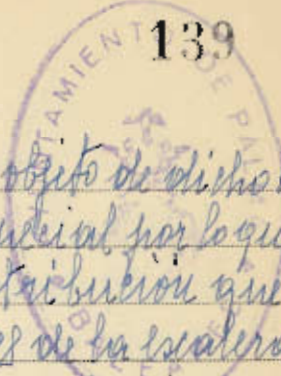 139
AYUNTAMIENTO DE PAL
objeto de dicho
uecial por lo qu
tribución que
es de la escalera